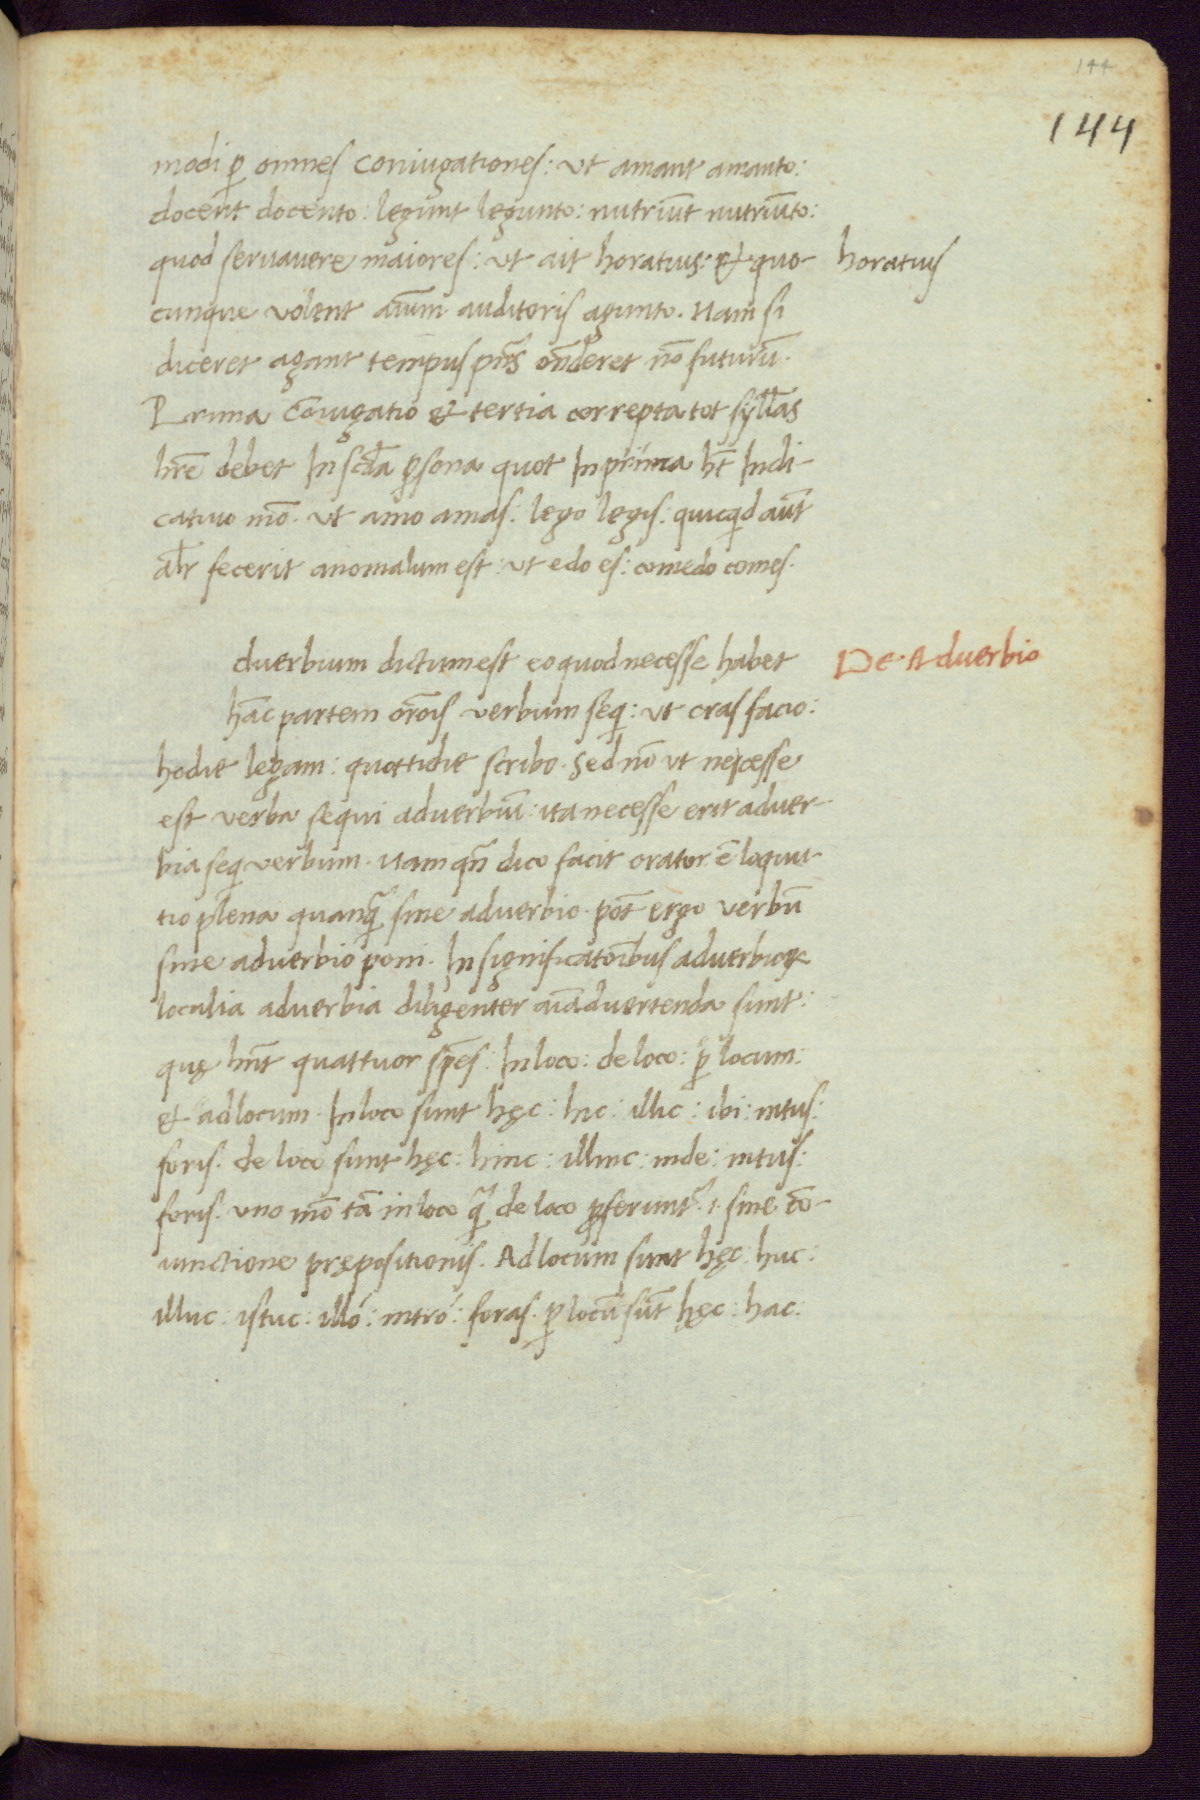 144
144
modi ꝑ omnes coniugationes: ut amant amanto:
docent docento: legunt legunto: nutriūt nutriūto:
quod seruauere maiores: ut ait horatius: & quo-
horatius
cunque uolent aīum auditoris agunto. Nam si
diceret agant tempus pn̄s on̄deret nō futurū.
Prima cōiugatio & tertia correpta tot syllăs
hr̄e debet In scďa ꝑsona quot In prima ht̄ Indi-
catiuo mō. ut amo amas: lego legis: quicqd aūt
alr̄ fecerit anomalum est: ut edo es: comedo comes.
duerbium dictum est eo quod necesse habet
De Aduerbio
hāc partem or̄ois uerbum seq̄: ut cras facio:
hodie legam: quottidie scribo. Sed nō ut necesse
est uerba sequi aduerbiū: ita necesse erit aduer-
bia seq̄ uerbum. Nam qn̄ dico facit orator ē loquu-
tio plena quanq̄ sine aduerbio. pōt ergo uerbū
sine aduerbio poni. In significatōibus aduerbioꝝ
localia aduerbia diligenter aīaduertenda sunt:
quę hn̄t quattuor sp̄es: In loco: de loco: ꝑ locum:
& ad locum. In loco sunt hęc: hic: illic: ibi: intus:
foris. de loco sunt hęc: hinc: illinc: inde: intus:
foris. uno mō tā in loco q̄ de loco ꝓferunt᷑. i. sine cō-
iunctione prępositionis. Ad locum sunt hęc: huc:
illuc: istuc: illó: intró: foras. ꝑ locū sūt hęc: hac: